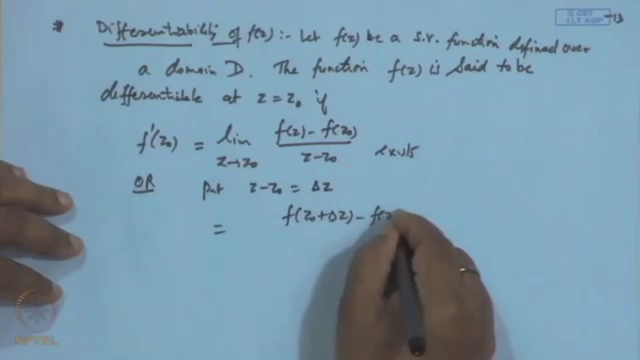 * Differentiability of f(z) :- Let f(z) be a s.v. function defined over
a domain D. The function f(z) is said to be
differentiable at z = z₀ if
f'(z₀) = lim z→z₀ f(z) - f(z₀) / z - z₀ exists
OR put z - z₀ = Δz
= f(z₀+Δz) - f(z
© CET
I.I.T. KGP
-13
NPTEL